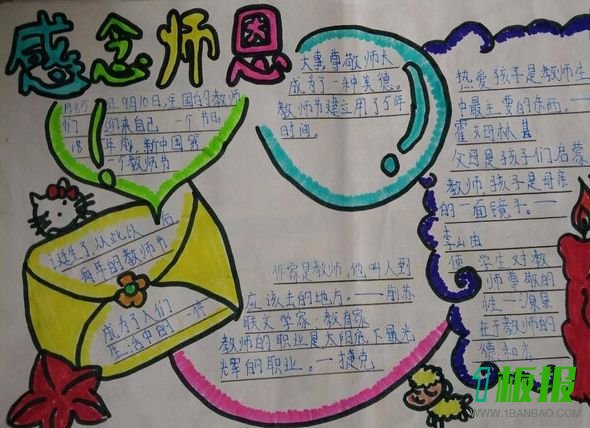 感念师恩
1985年9月10日,全国的教师
们 迎来自己 一个节日。
18年前,新中国第
一个教师节
诞生了,从此以 后
每年的教师节
成为了人们
生活中的 一种
大事,尊敬师长
成为了一种美德。
教师节建立用了5年
时间。
作家是教师,他叫人到
应该去的地方。——前苏
联文学家,教育家
教师的职业是太阳底下最光
辉的职业。——捷克
热爱孩子是教师生
中最主要的东西。——
霍姆林
父母是孩子们启蒙
教师,孩子是母亲
的一面镜子。——
李山由
使 学生对教
师尊敬的
惟一源泉
在于教师的
德和才
1板报
WWW.1BANBAO.COM